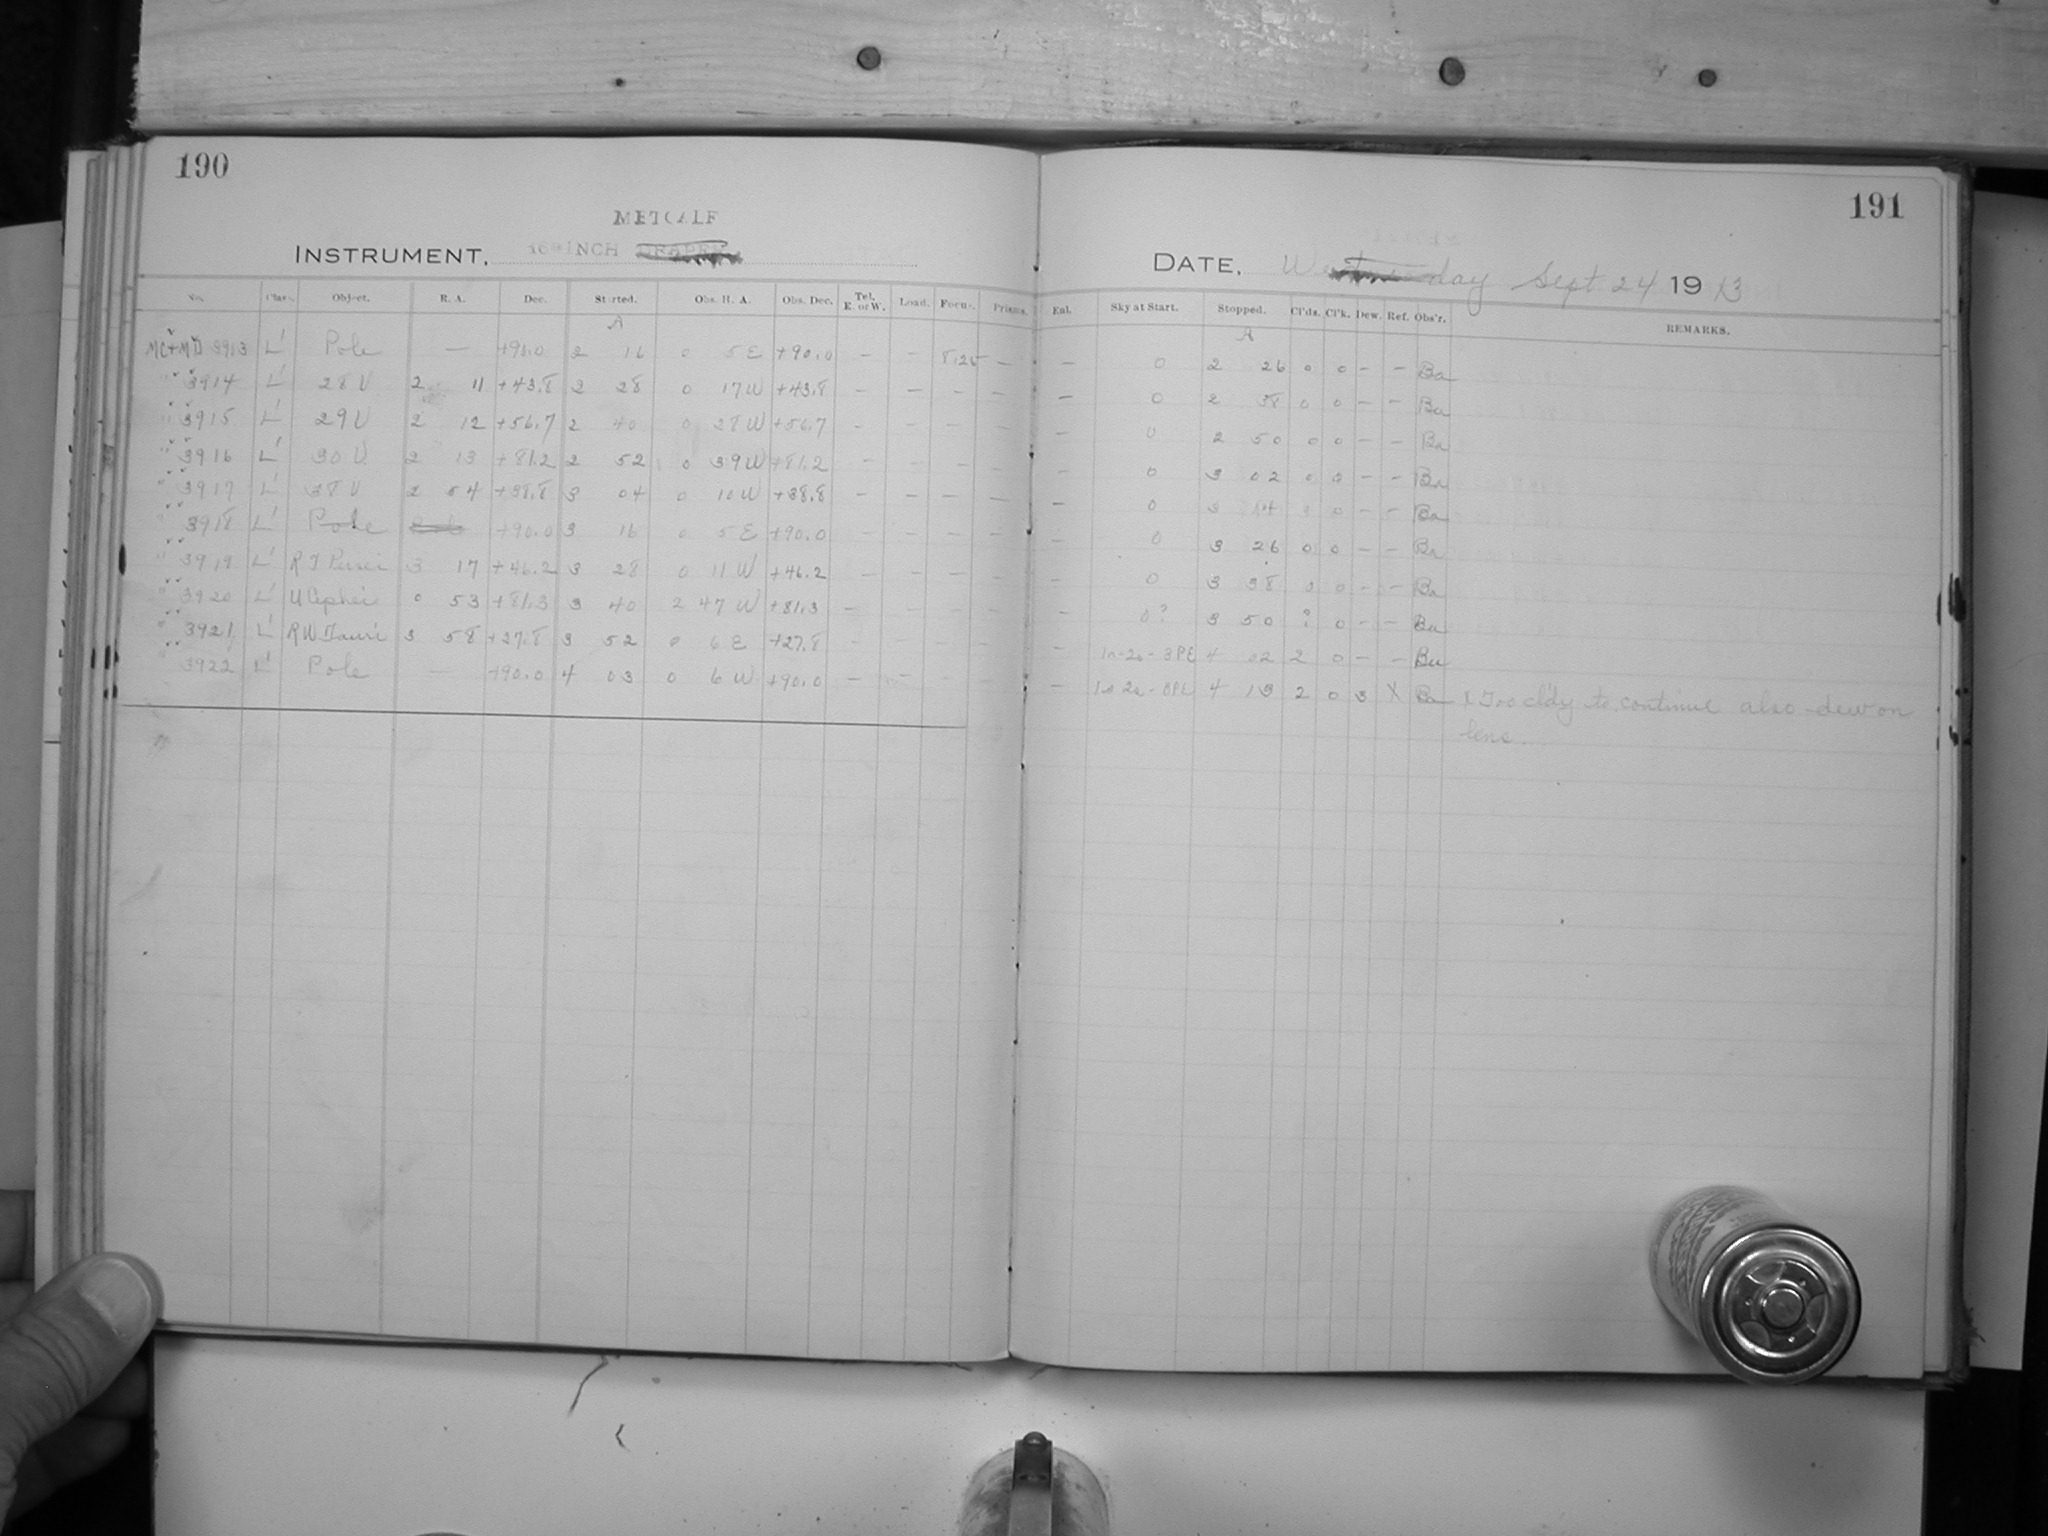 190
METCALF
INSTRUMENT. 16-INCH DRAPER
No. Class. Object. R. A. Dec. Started. Obs. H. A. Obs. Dec. Tel. E. or W. Load. Focus. Prisms.
A
MC+MD 3913 L' Pole — +90.0 2 16 0 5 E +90.0 — — 8.25 —
" 3914 L' 28 U 2 11 +43.8 2 28 0 17 W +43.8 — — — —
" 3915 L' 29 U 2 12 +56.7 2 40 0 28 W +56.7 — — — —
" 3916 L' 30 U 2 13 +81.2 2 52 0 39 W +81.2 — — — —
" 3917 L' 38 U 2 54 +38.8 3 04 0 10 W +38.8 — — — —
" 3918 L' Pole +90.0 3 16 0 5 E +90.0 — — — —
" 3919 L' R T Persei 3 17 +46.2 3 28 0 11 W +46.2 — — — —
" 3920 L' U Cephei 0 53 +81.3 3 40 2 47 W +81.3 — — — —
" 3921 L' R W Tauri 3 58 +27.8 3 52 0 6 E +27.8 — — — —
" 3922 L' Pole — +90.0 4 03 0 6 W +90.0 — — — —
191
DATE. day Sept 24 1913
Enl. Sky at Start. Stopped. Cl'ds. Cl'k. Dew. Ref. Obs'r. REMARKS.
A
— 0 2 26 0 0 — — Ba
— 0 2 38 0 0 — — Ba
— 0 2 50 0 0 — — Ba
— 0 3 02 0 0 — — Ba
— 0 3 14 0 0 — — Ba
— 0 3 26 0 0 — — Ba
— 0 3 38 0 0 — — Ba
— 0? 3 50 ? 0 — — Ba
— 4 02 2 0 — — Ba
— 4 13 2 0 3 X Ba X Too cldy to continue also dew on
lens.